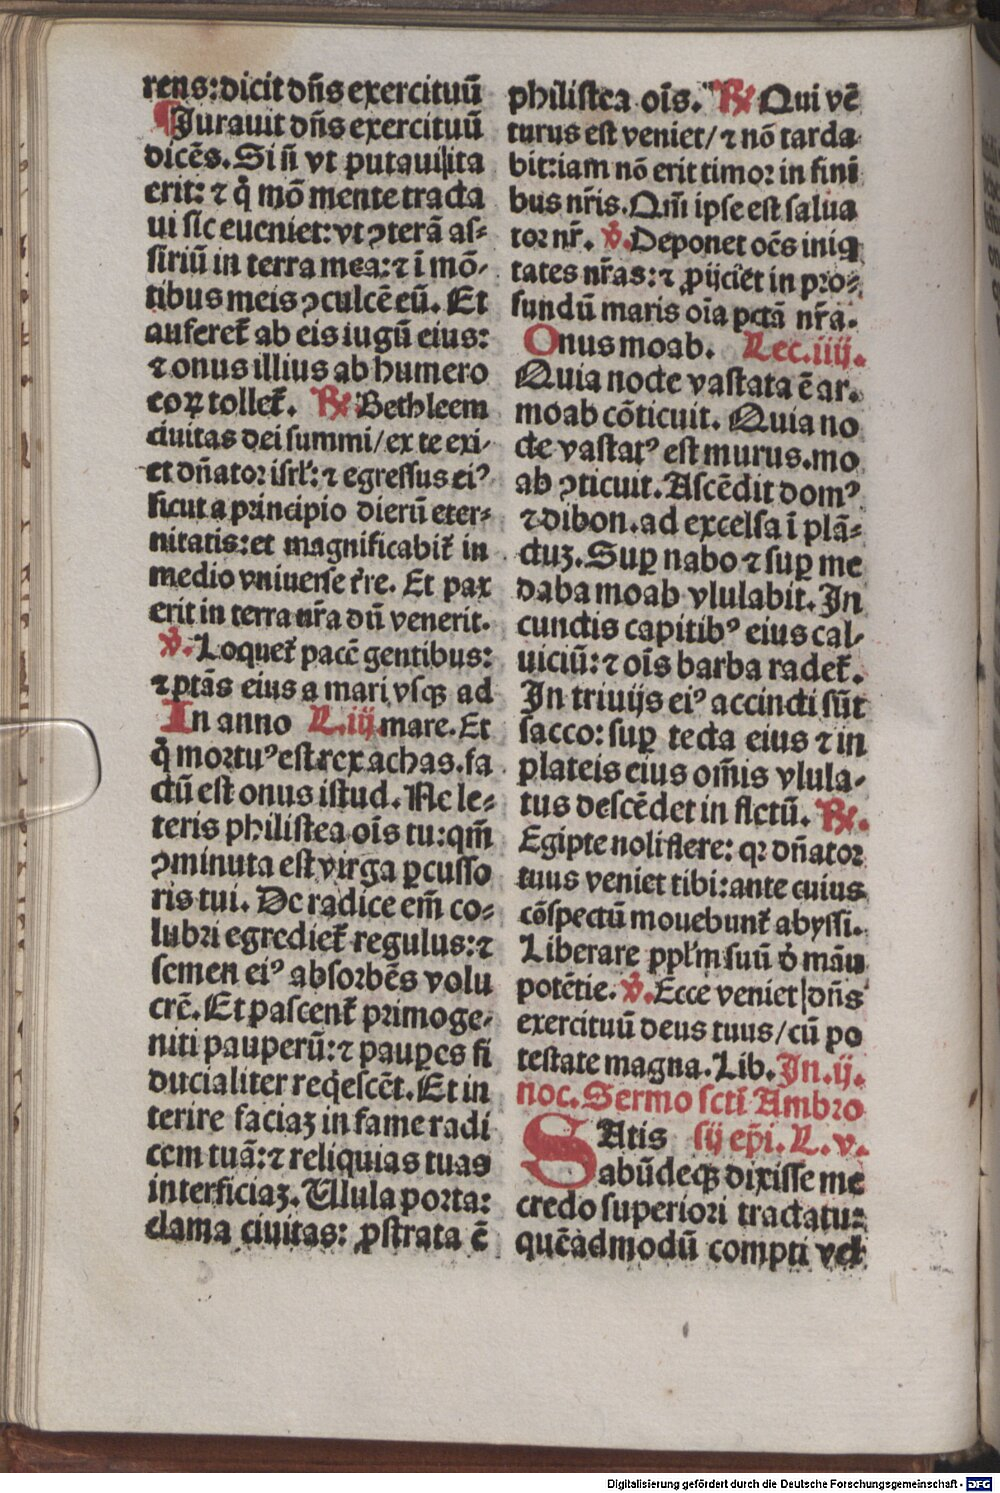 rens:dicit dñs exercituū
¶Jurauit dñs exercituū
dicēs. Si ñ vt putaui ita
erit: ⁊ q̊ mō mente tracta
ui sic eueniet: vt ꝯterā as⸗
siriū in terra mea: ⁊ ī mō⸗
tibus meis ꝯculcē eū. Et
auferet̄ ab eis iugū eius:
⁊ onus illius ab humero
eoꝝ tollet̄. ℞. Bethleem
ciuitas dei summi/ ex te exi⸗
et dñator isrl̄: ⁊ egressus eiꝰ
sicut a principio dierū eter⸗
nitatis: et magnificabit̄ in
medio vniuerse t̄re. Et pax
erit in terra nr̄a dū venerit.
℣. Loquet̄ pacē gentibus:
⁊ ptās eius a mari vsqꝫ ad
In anno L. iij. mare. Et
q̊ mortuꝰ est rex achas. fa
ctū est onus istud. Ne le⸗
teris philistea oīs tu: qm̄
ꝯminuta est virga ꝑcusso
ris tui. De radice em̄ co⸗
lubri egrediet̄ regulus: ⁊
semen eiꝰ absorbēs volu
crē. Et pascent̄ primoge⸗
niti pauperū: ⁊ pauꝑes fi
ducialiter reqescēt. Et in
terire faciaꝫ in fame radi
cem tuā: ⁊ reliquias tuas
interficiaꝫ. Ullula porta:
clama ciuitas: ꝓstrata ē
philistea oīs. ℞. Qui vē
turus est veniet/ ⁊ nō tarda
bit: iam nō erit timor in fini
bus nr̄is. Qm̄ ipse est salua
tor nr̄. ℣. Deponet oēs iniq
tates nr̄as: ⁊ ꝓijciet in pro⸗
fundū maris oīa pctā nr̄a.
Onus moab. Lec. iiij.
Quia nocte vastata ē ar.
moab cōticuit. Quia no
cte vastatꝰ est murus. mo
ab ꝯticuit. Ascēdit domꝰ
⁊ dibon. ad excelsa ī plā⸗
ctuꝫ. Suꝑ nabo ⁊ suꝑ me
daba moab vlulabit. In
cunctis capitibꝰ eius cal⸗
uiciū: ⁊ oīs barba radet̄.
In triuijs eiꝰ accincti sūt
sacco: suꝑ tecta eius ⁊ in
plateis eius om̄is vlula⸗
tus descēdet in fletū. ℞.
Egipte noli flere: qꝛ dñator
tuus veniet tibi: ante cuius
cōspectū mouebunt̄ abyssi.
Liberare ppl̄m suū d̓ māu
potētie. ℣. Ecce veniet dñs
exercituū deus tuus/ cū po
testate magna. Lib. In. ij.
noc. Sermo scti Ambro
SAtis sij ep̄i. L. v.
abūdeqꝫ dixisse me
credo superiori tractatu:
quēadmodū compti vel
Digitalisierung gefördert durch die Deutsche Forschungsgemeinschaft - DFG